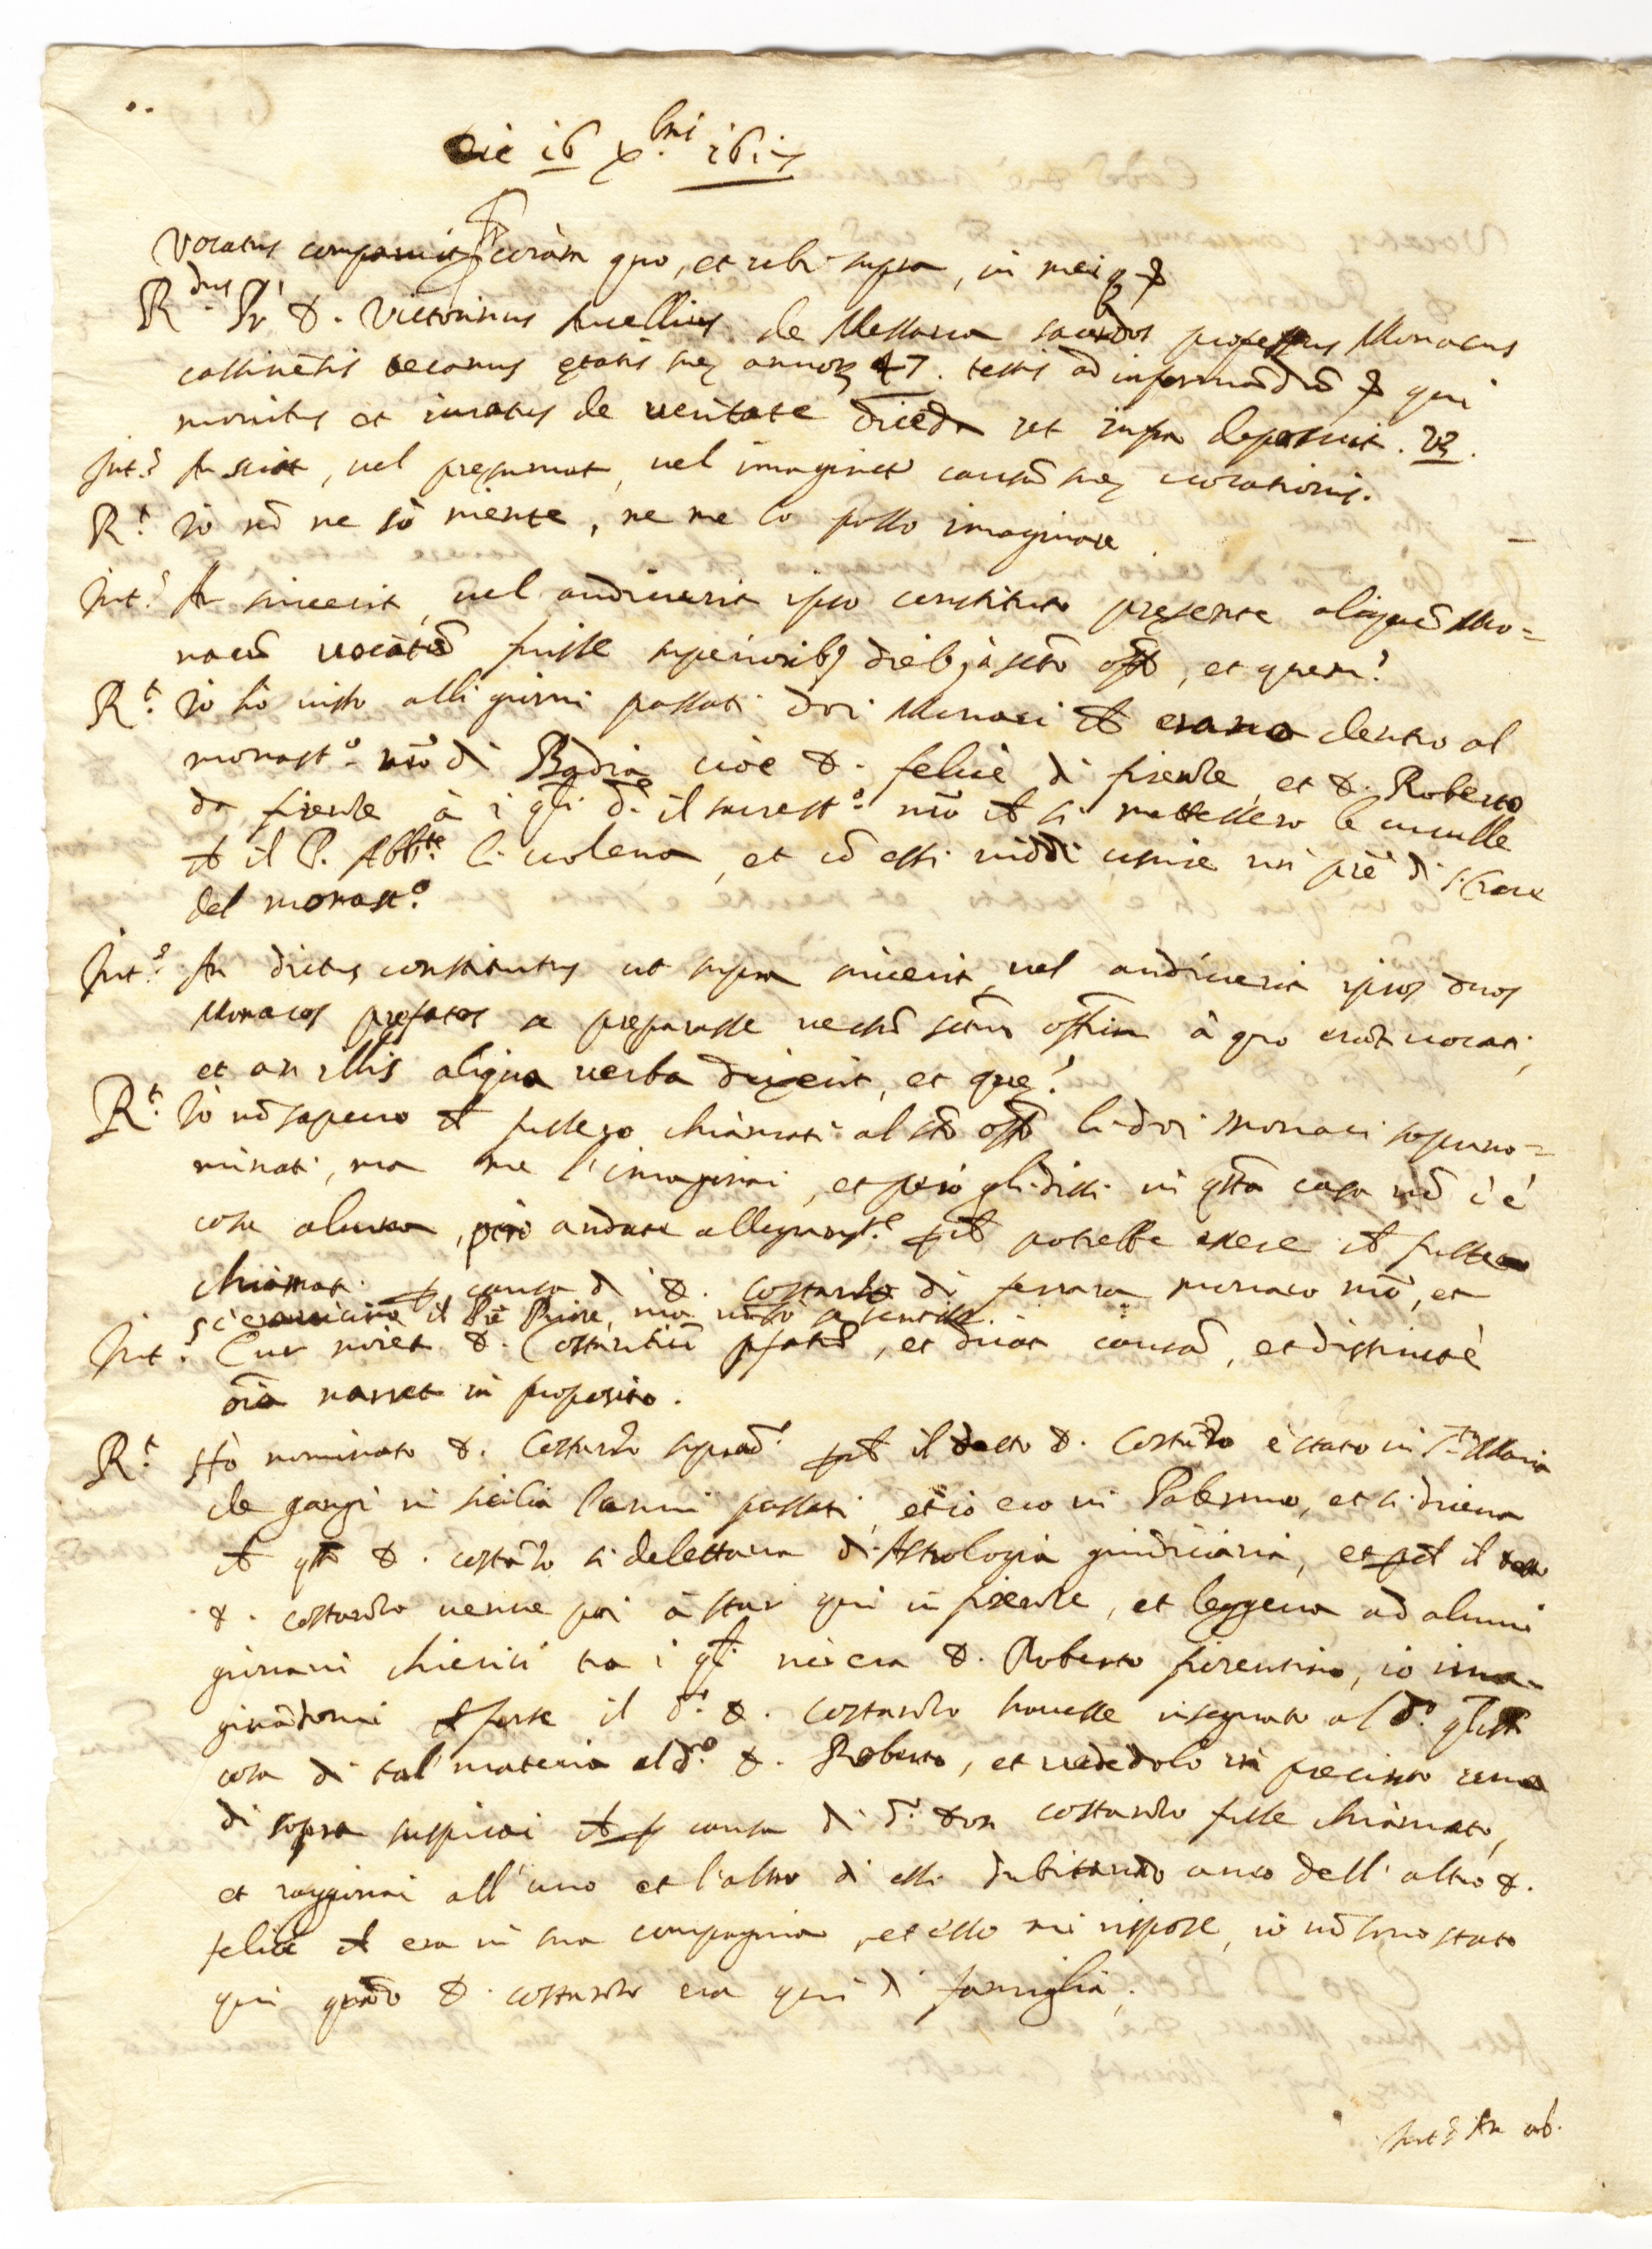 Die 16 Xbris 1617
Vocatus comparuit coram quo, et ubi supra, in meiq
R.dus Pr D. Victorinus de Messana sacerdos professus Monacus
cassinēsis decanus ętatis suę annoꝝ 47. testis ad informandū qui
monitus et iuratus de veritate dicēda ut infra deposuit. vꝫ.
Int.s An sciat, vel pręsumat, vel imaginet causā suę vocationis.
R.t Io nō ne sò niente, ne me lo posso imaginare
Int.s An sciverit, vel audiverit ipso constituto pręsente aliquē Mo=
nacū vocatū fuisse superioribꝫ diebꝫ à scto offo, et quem?
R.t Io hò visto alli giorni passati doi Monaci ch erano dentro al
monast.o nrō di Badia cioè D. felice di firenze, et D. Roberto
da firenze à i qli d.e il sacrest.o nrō ch si mettessero le cuculle
ch il P. Abb.te li voleva, et cō essi viddi venire un prē di s. Croce
del monast.o
Int.s An dictus constitutus ut supra sciverit, vel audiverit ipsos duos
Monacos prefatos se preparasse versū sctum offium à quo erāt vocati,
et an illis aliqua verba dixerit, et quę?
R.t Io nō sapevo ch fussero chiamati al sto offo li doi monaci sopranno=
minati, ma me l'imaginai, et però gli dissi in qsta casa nō c'è
cosa alcuna, però andate allegramt.e pch potrebbe essere ch fusse
chiamati p causa di D. Costanzo di ferrara monaco nrō, et
c'era vicino il Prē Priore, ma nō sò se sentisse.
Int.s Cur noiet D. Costantiū pfatū, et dicat causā, et distinctè
oīa narret in proposito.
R.t Hò nominato D. Costanzo suprad.o pch il detto D. Costāzo è stato in S.ta Maria
de gangi in sicilia l'anni passati, et io ero in Palermo, et si diceva
ch qto D. costāzo si delettava di Astrologia giudiciaria, et pch il detto
D. costanzo venne poi à star qui in firenze, et leggeva ad alcuni
giovani chierici tra i qli vi era D. Roberto fiorentino, io ima=
ginādomi ch forse il d.o D. costanzo havesse insegnato al d.o qlche
cosa di tal materia al d.o D. Roberto, et vedēdolo in precinto come
di sopra suspicai ch p causa di d.o Don costanzo fusse chiamato,
et raggionai all'uno et l'altro di essi dubitando anco dell'altro D.
felice ch era in sua compagnia, et esso mi rispose, io nō sono stato
qui quādo D. costanzo era qui di famiglia.
Int.s An ab.